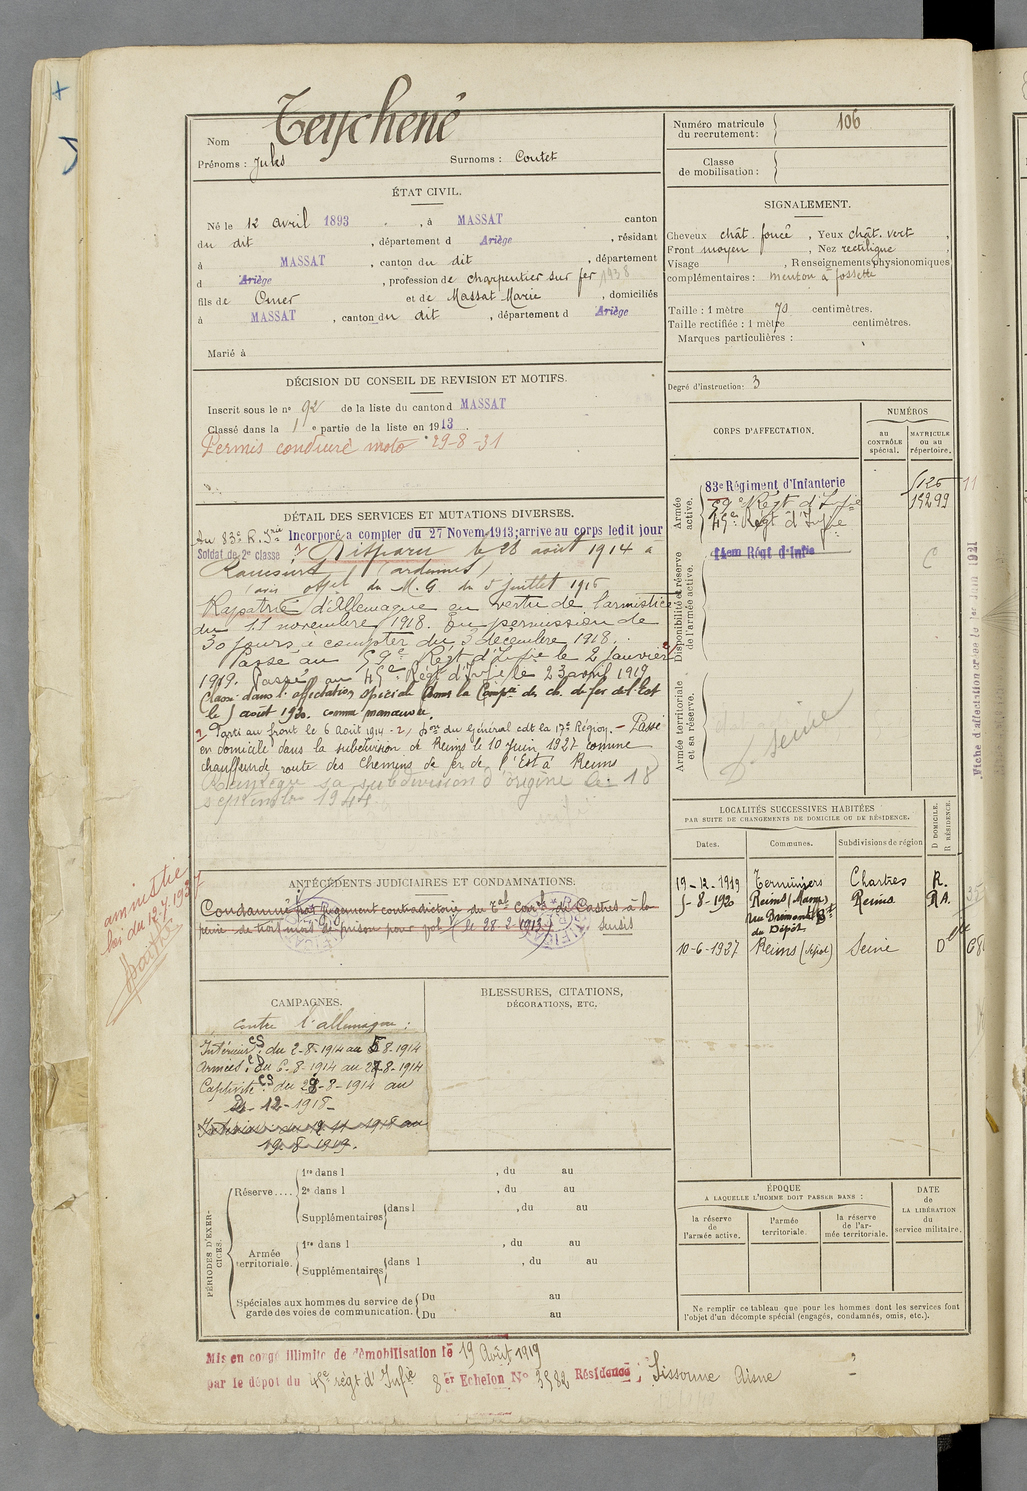 Nom Teychené
Prénoms : Jules Surnoms : Coutet
Numéro matricule du recrutement : 106
Classe de mobilisation :
ÉTAT CIVIL.
Né le 12 avril 1893, à MASSAT canton
du dit, département d Ariège, résidant
à MASSAT, canton du dit, département
d Ariège, profession de charpentier sur fer 1938
fils de Omer et de Massat Marie, domiciliés
à MASSAT, canton du dit, département d Ariège
Marié à
SIGNALEMENT.
Cheveux chât. foncé, Yeux chât. vert,
Front moyen, Nez rectiligne
Visage , Renseignements physionomiques
complémentaires : menton à fossette
Taille : 1 mètre 70 centimètres.
Taille rectifiée : 1 mètre centimètres.
Marques particulières :
Degré d'instruction : 3
DÉCISION DU CONSEIL DE REVISION ET MOTIFS.
Inscrit sous le nº 92 de la liste du canton d MASSAT
Classé dans la 1e partie de la liste en 1913.
Permis conduire moto 29-8-31
DÉTAIL DES SERVICES ET MUTATIONS DIVERSES.
Au 83e R. Irie Incorporé a compter du 27 Novem 1913; arrive au corps ledit jour
Soldat de 2e classe Disparu le 28 août 1914 à
Raucourt (ardennes)
(avis offel du M. G. du 5 juillet 1916
Rapatrié d'Allemagne en vertu de l'armistice
du 11 novembre 1918. En permission de
30 jours à compter du 3 décembre 1918.
Passé au 59e Regt d'Infie le 2 Janvier
1919. Passé au 45e Régt d'Infie le 23 avril 1919
Classé dans l'affectation spéciale dans la Compie des ch. de fer de l'Est
le 5 août 1920. comme manœuvre.
Parti au front le 6 août 1914 - 2) du Général cdt la 17e Région. - Passé
en domicile dans la subdivision de Reims le 10 Juin 1927 comme
chauffeur de route des chemins de fer de l'Est à Reims
sa subdivision d'origine le 18
septembre 1944
CORPS D'AFFECTATION.
NUMÉROS
AU CONTRÔLE spécial.
MATRICULE OU AU répertoire.
Armée active.
83e Régiment d'Infanterie
59e Régt d'Infie
45e Régt d'Infie
15299
Disponibilité et réserve de l'armée active.
Régt d'Infie
Armée territoriale et sa réserve.
D. Seine
Fiche d'affectation créée le 1er Juin 1921
LOCALITÉS SUCCESSIVES HABITÉES
PAR SUITE DE CHANGEMENTS DE DOMICILE OU DE RÉSIDENCE.
Dates. Communes. Subdivisions de région D DOMICILE. R RÉSIDENCE.
19-12-1919 Terminiers Chartres R.
5-8-1920 Reims (Marne) Reims R.A.
du Dépôt
10-6-1927 Reims (dépôt) Seine D
ANTÉCÉDENTS JUDICIAIRES ET CONDAMNATIONS.
Condamné par jugement contradictoire du Tal Corel de Castres à la
peine de trois mois de prison pour vol (le 28-2-1913) sursis
amnistie
loi du 12.7.1937
CAMPAGNES.
contre l'allemagne :
Intérieur CS : du 2-8-1914 au 5-8-1914
armées : du 6-8-1914 au 27-8-1914
Captivité CS : du 28-8-1914 au
2-12-1918-
19-8-1919.
BLESSURES, CITATIONS,
DÉCORATIONS, ETC.
PÉRIODES D'EXERCICES.
Réserve.... 1re dans l , du au
2e dans l , du au
Supplémentaires dans l , du au
Armée territoriale. 1re dans l , du au
Supplémentaires dans l , du au
Spéciales aux hommes du service de garde des voies de communication. Du au
Du au
ÉPOQUE
A LAQUELLE L'HOMME DOIT PASSER DANS :
la réserve de l'armée active.
l'armée territoriale.
la réserve de l'armée territoriale.
DATE de LA LIBÉRATION du service militaire.
Ne remplir ce tableau que pour les hommes dont les services font
l'objet d'un décompte spécial (engagés, condamnés, omis, etc.).
Mis en congé illimité de démobilisation le 19 Août 1919
par le dépôt du 45e régt d'Infie 8er Echelon No 3582 Résidence ; Sissonne Aisne